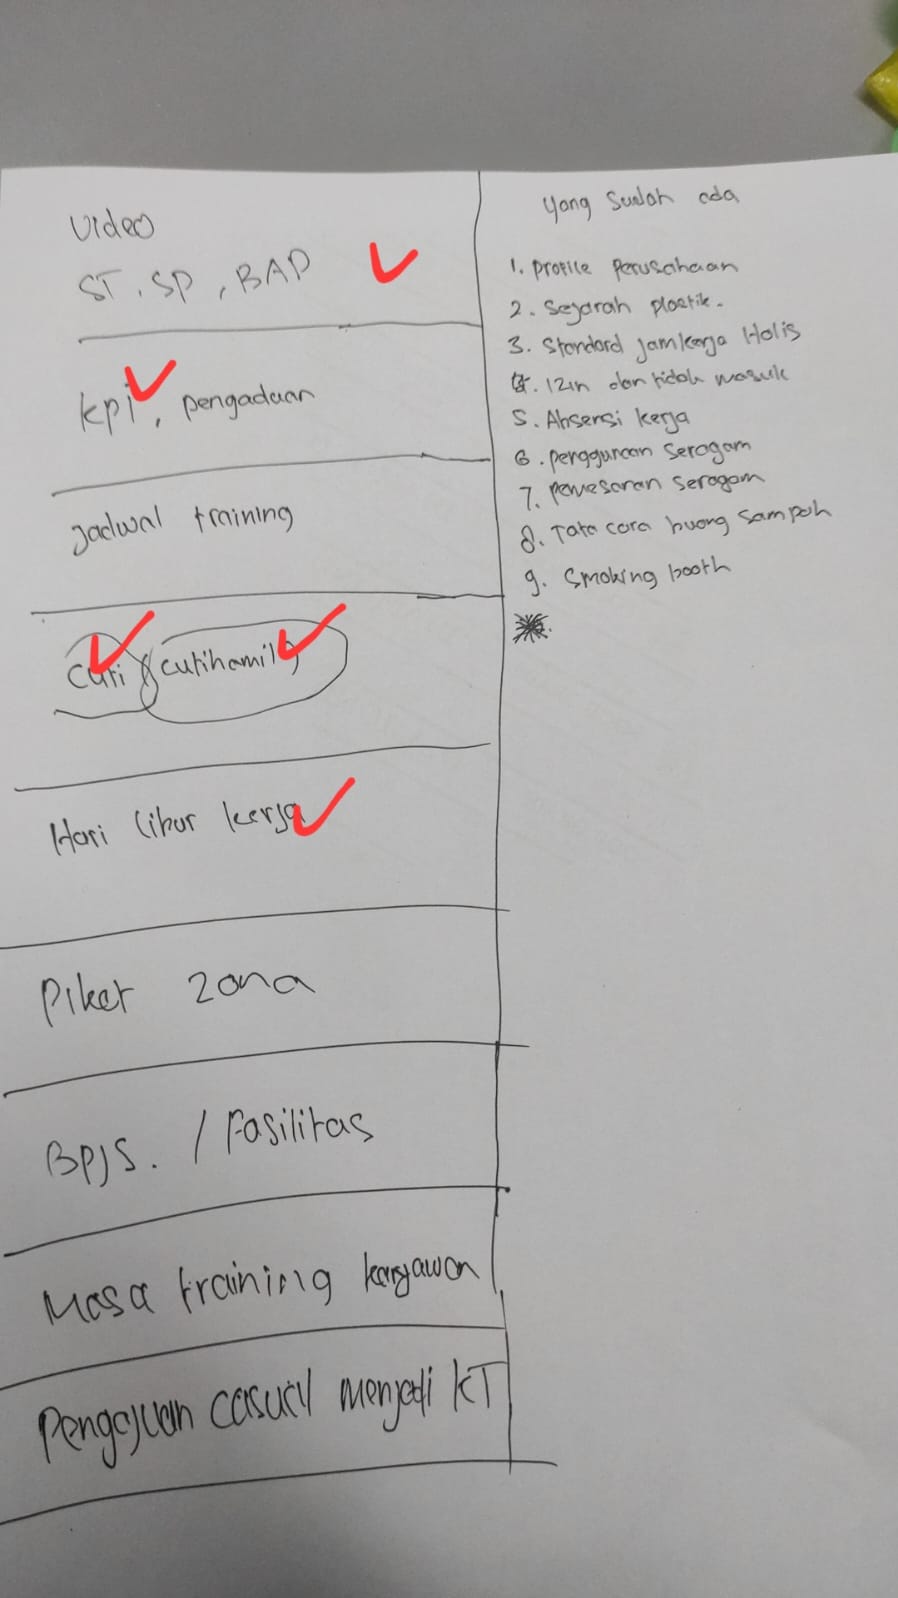 Video
ST, SP, BAP
kpi, pengaduan
Jadwal training
Cuti / cutihamil
Hari libur kerja
Piket zona
BPJS. / Fasilitas
Masa training karyawan
Pengajuan casual menjadi KT
Yang sudah ada
1. Profile Perusahaan
2. Sejarah plastik.
3. Standard jamkerja Holis
4. Izin dan tidak masuk
5. Absensi kerja
6. penggunaan seragam
7. Pemesanan seragam
8. Tata cara buang sampah
9. Smoking booth